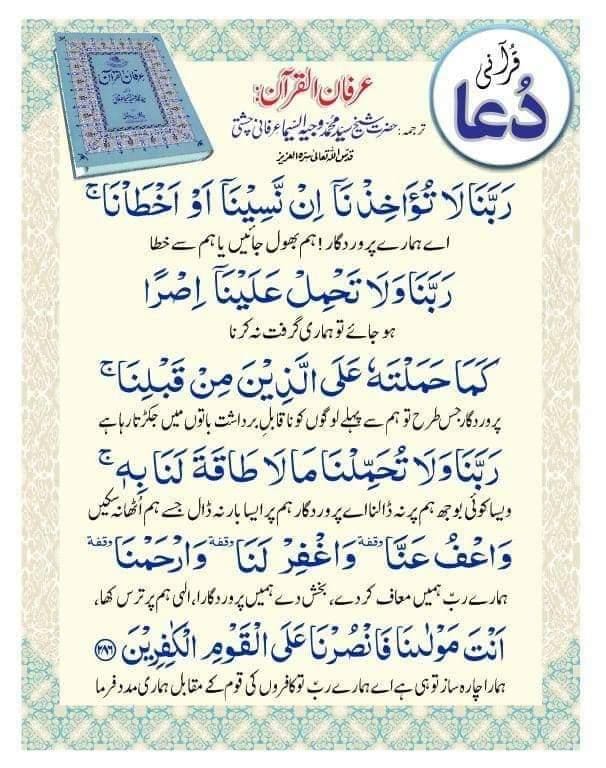 قرآنی
دُعا
عرفان القرآن
عرفان القرآن
ترجمہ: حضرت شیخ سید محمد وجیہ السیما عرفانی چشتی
قدس اللہ تعالیٰ سرہ العزیز
رَبَّنَا لَا تُؤَاخِذْنَآ اِنْ نَّسِيْنَآ اَوْ اَخْطَاْنَا ۚ
اے ہمارے پروردگار! ہم بھول جائیں یا ہم سے خطا
رَبَّنَا وَلَا تَحْمِلْ عَلَيْنَآ اِصْرًا
ہو جائے تو ہماری گرفت نہ کرنا
كَمَا حَمَلْتَهٗ عَلَى الَّذِيْنَ مِنْ قَبْلِنَا ۚ
پروردگار جس طرح تو ہم سے پہلے لوگوں کو ناقابلِ برداشت باتوں میں جکڑتا رہا ہے
رَبَّنَا وَلَا تُحَمِّلْنَا مَا لَا طَاقَةَ لَنَا بِهٖ ۚ
ویسا کوئی بوجھ ہم پر نہ ڈالنا اے پروردگار ہم پر ایسا بار نہ ڈال جسے ہم اُٹھا نہ سکیں
وَاعْفُ عَنَّا وقفة وَاغْفِرْ لَنَا وقفة وَارْحَمْنَا وقفة
ہمارے ربّ ہمیں معاف کر دے، بخش دے ہمیں پروردگارا، الٰہی ہم پر ترس کھا،
اَنْتَ مَوْلٰىنَا فَانْصُرْنَا عَلَى الْقَوْمِ الْكٰفِرِيْنَ ۲۸۶
ہمارا چارہ ساز تو ہی ہے اے ہمارے ربّ تو کافروں کی قوم کے مقابل ہماری مدد فرما